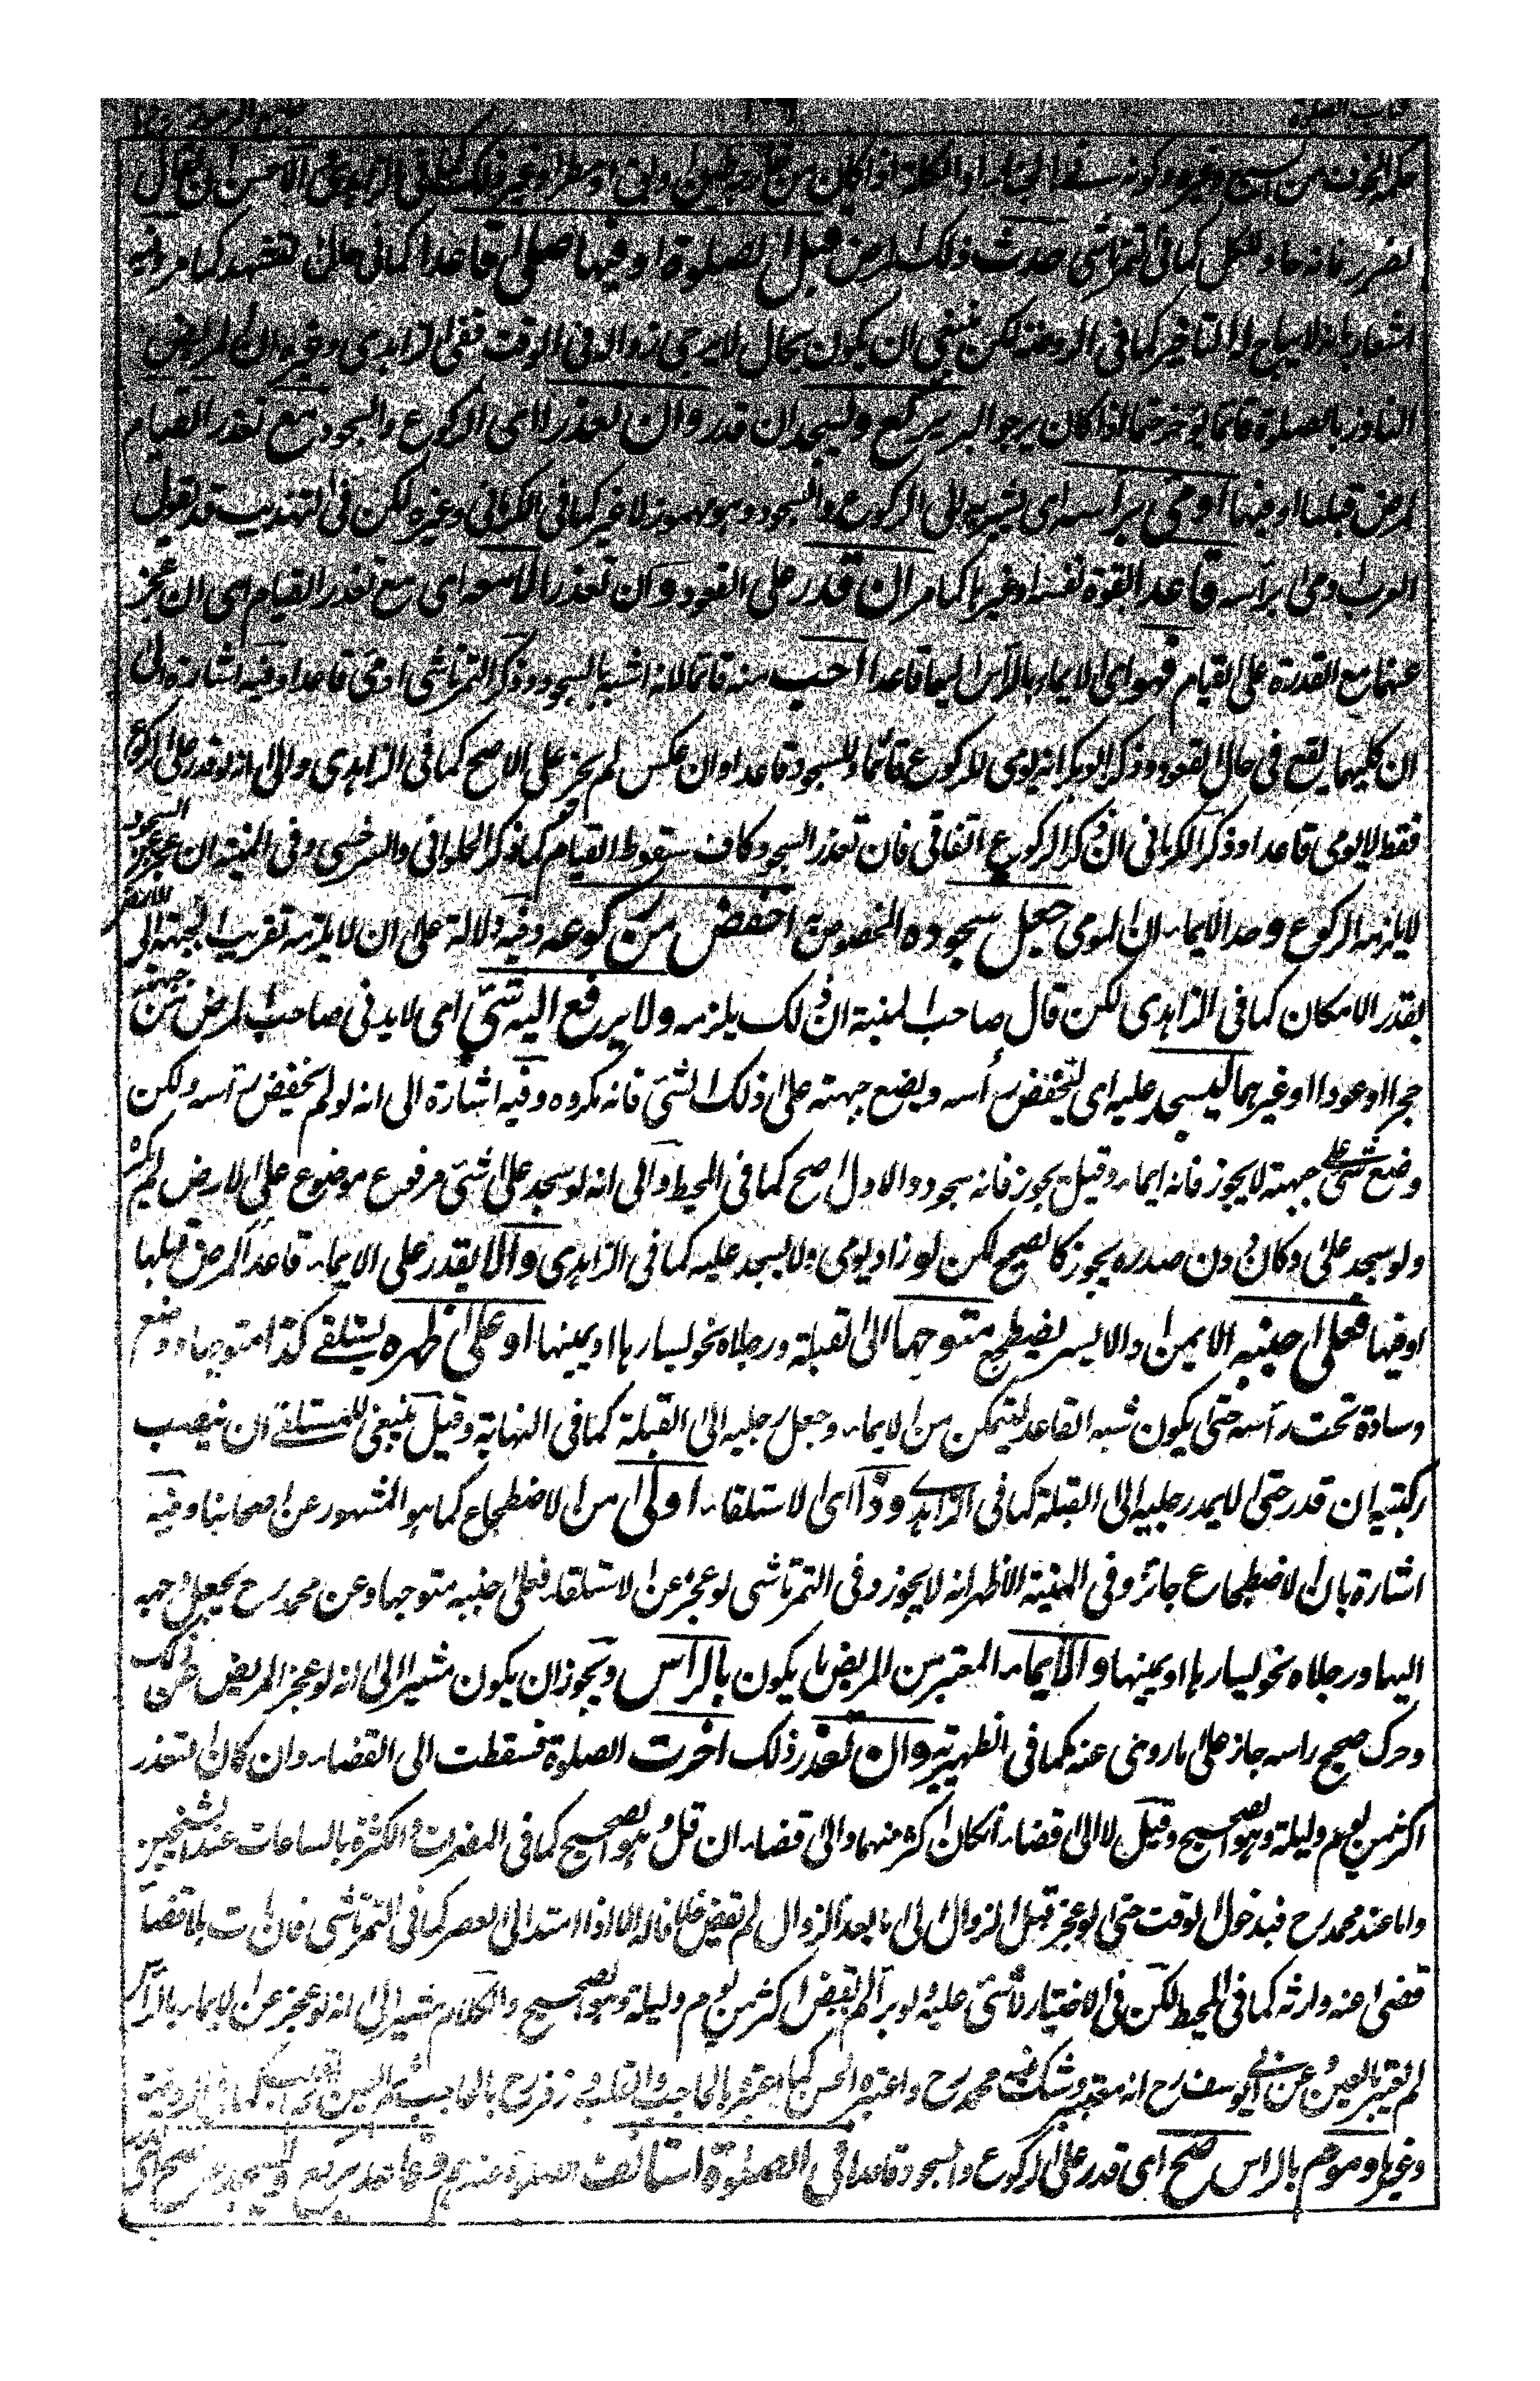 كتاب الصلوة
لضرر فانه حاول لكل كما فى التمرتاشى حدث ذلك المرض قبل الصلوة او فيها صلى قاعدا كما فى حال تشهد كما مر وفيه
اشعار بانه لا يباح له التاخير كما فى الروضة لكن ينبغى ان يكون بحال لا يرجى زواله فى الوقت ففى الزاهدى وغيره ان المريض
بالصلوة قائما يؤخر حتما اذا كان يرجو البرء يركع ويسجد ان قدر وان تعذر اى الركوع والسجود مع تعذر القيام
لمرض قبلها او فيها اومى براسه اى يشير به الى الركوع والسجود وهو مهموز لا غير كما فى الكرمانى وغيره لكن فى التهذيب قد تقول
العرب اومى براسه قاعدا بقوة نفسه او غيرها كما مر ان قدر على القعود وان تعذرا لا معه اى مع تعذر القيام اى ان عجز
عنهما مع القدرة على القيام فهو اى الايماء بالرأس ايماء قاعدا احب منه قائما لانه اشبه بالسجود وذكر التمرتاشى اومى قاعدا وفيه اشارة الى
ان كليهما يقع فى حال القعود وذكر ابو بكر انه يومى للركوع قائما وللسجود قاعدا وان عكس لم يجز على الاصح كما فى الزاهدى والى انه لو قدر على الركوع
فقط لا يومى قاعدا وذكر الكرمانى ان ذكر الركوع اتفاقى فان تعذر السجود كاف لسقوط القيام كما ذكر الحلوانى والسرخسى وفى المنية ان عجز عن السجود
لا يلزمه الركوع وحد الايماء ان المومى جعل سجوده المخصوص به اخفض من ركوعه وفيه دلالة على ان لا يلزمه تقريب الجبهة الى الارض
بقدر الامكان كما فى الزاهدى لكن قال صاحب المنية ان ذلك يلزمه ولا يرفع اليه شئ اى لا يدنى صاحب المرض من جبهته
حجرا او عودا او غيرهما ليسجد عليه اى ليخفض رأسه ويضع جبهته على ذلك الشئ فانه مكروه وفيه اشارة الى انه لو لم يخفض رأسه ولكن
وضع شئ على جبهته لا يجوز فانه ايماء وقيل يجوز فانه سجود والاول اصح كما فى المحيط والى انه لو سجد على شئ مرفوع موضوع على الارض لم يكره
ولو سجد على دكان دون صدره يجوز كالصحيح لكن لو زاد يومى ولا يسجد عليه كما فى الزاهدى والا يقدر على الايماء قاعدا لمرض قبلها
او فيها فعلى جنبه الايمن والايسر يضطجع متوجها الى القبلة ورجلاه نحو يسارها او يمينها او على ظهره يستلقى كذا متوجها ووضع
وسادة تحت رأسه حتى يكون شبه القاعد ليتمكن من الايماء وجعل رجليه الى القبلة كما فى النهاية وقيل ينبغى للمستلقى ان ينصب
ركبتيه ان قدر حتى لا يمد رجليه الى القبلة كما فى الزاهدى وذا اى الاستلقاء اولى من الاضطجاع كما هو المشهور عن اصحابنا وفيه
اشارة بان الاضطجاع جائز وفى المنية الاظهر انه لا يجوز وفى التمرتاشى لو عجز عن الاستلقاء فعلى جنبه متوجها وعن محمد رح يجعل وجهه
اليها ورجلاه نحو يسارها او يمينها والايماء المعتبر من المريض يكون بالراس ويجوز ان يكون مشيرا الى انه لو عجز المريض عن ذلك
وحرك صحيح راسه جاز على ما روى عنه كما فى الظهيرية وان تعذر ذلك اخرت الصلوة فسقطت الى القضاء وان كان التعذر
اكثر من يوم وليلة وهو الصحيح وقيل لا الى قضاء ان كان اكثر منهما والى قضاء ان قل وهو الصحيح كما فى المضمرات والكثرة بالساعات عند الشيخين
واما عند محمد رح فبدخول الوقت حتى لو عجز قبل الزوال الى ما بعد الزوال لم يقض خلافا له الا اذا امتد الى العصر كما فى التمرتاشى فان مات بلا قضاء
قضى عنه وارثه كما فى المحيط لكن فى الاختيار لا شئ عليه ولو برأ لم يقض اكثر من يوم وليلة وهو الصحيح والكلام مشير الى انه لو عجز عن الايماء بالرأس
لم يعتبر بالعين وعن ابى يوسف رح انه معتبر وشك فيه محمد رح واعتبره الحسن كما اعتبره بالحاجب والقلب زفر رح بالحاجب ثم العين ثم القلب كما فى
وغيرها ومؤم بالراس صح اى قدر على الركوع والسجود قاعدا فى الصلوة استانف الصلوة عندهم وقاعد يركع ويسجد صح